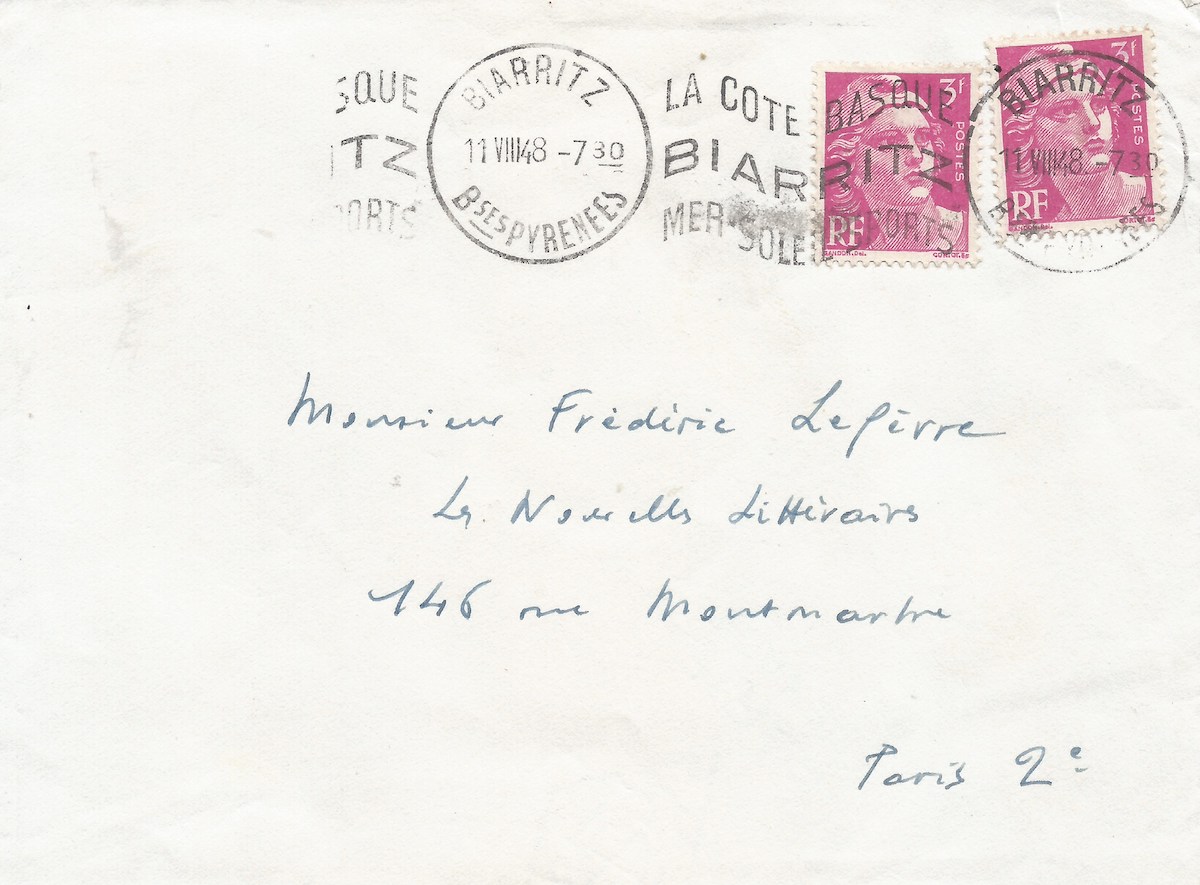 SQUE
ITZ
PORTS
BIARRITZ
11 VIII 48 - 7 30
BSES PYRENEES
LA COTE BASQUE
BIARRITZ
MER-SOLEIL-SPORTS
3f
POSTES
RF
GANDON.Del.
3f
POSTES
RF
BIARRITZ
11 VIII 48 - 7 30
Monsieur Frédéric Lefèvre
Les Nouvelles Littéraires
146 rue Montmartre
Paris 2e